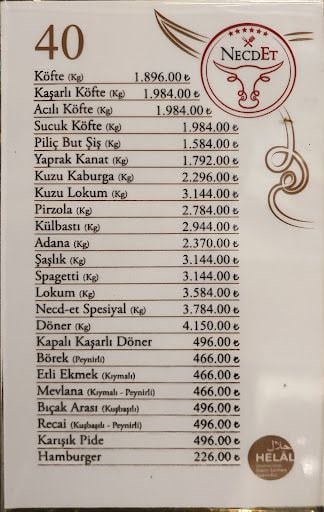 40
NecdEt
Köfte (Kg) 1.896.00 ₺
Kaşarlı Köfte (Kg) 1.984.00 ₺
Acılı Köfte (Kg) 1.984.00 ₺
Sucuk Köfte (Kg) 1.984.00 ₺
Piliç But Şiş (Kg) 1.584.00 ₺
Yaprak Kanat (Kg) 1.792.00 ₺
Kuzu Kaburga (Kg) 2.296.00 ₺
Kuzu Lokum (Kg) 3.144.00 ₺
Pirzola (Kg) 2.784.00 ₺
Külbastı (Kg) 2.944.00 ₺
Adana (Kg) 2.370.00 ₺
Şaşlık (Kg) 3.144.00 ₺
Spagetti (Kg) 3.144.00 ₺
Lokum (Kg) 3.584.00 ₺
Necd-et Spesiyal (Kg) 3.784.00 ₺
Döner (Kg) 4.150.00 ₺
Kapalı Kaşarlı Döner 496.00 ₺
Börek (Peynirli) 466.00 ₺
Etli Ekmek (Kıymalı) 466.00 ₺
Mevlana (Kıymalı - Peynirli) 466.00 ₺
Bıçak Arası (Kuşbaşılı) 496.00 ₺
Recai (Kuşbaşılı - Peynirli) 496.00 ₺
Karışık Pide 496.00 ₺
Hamburger 226.00 ₺
حلال
HELAL